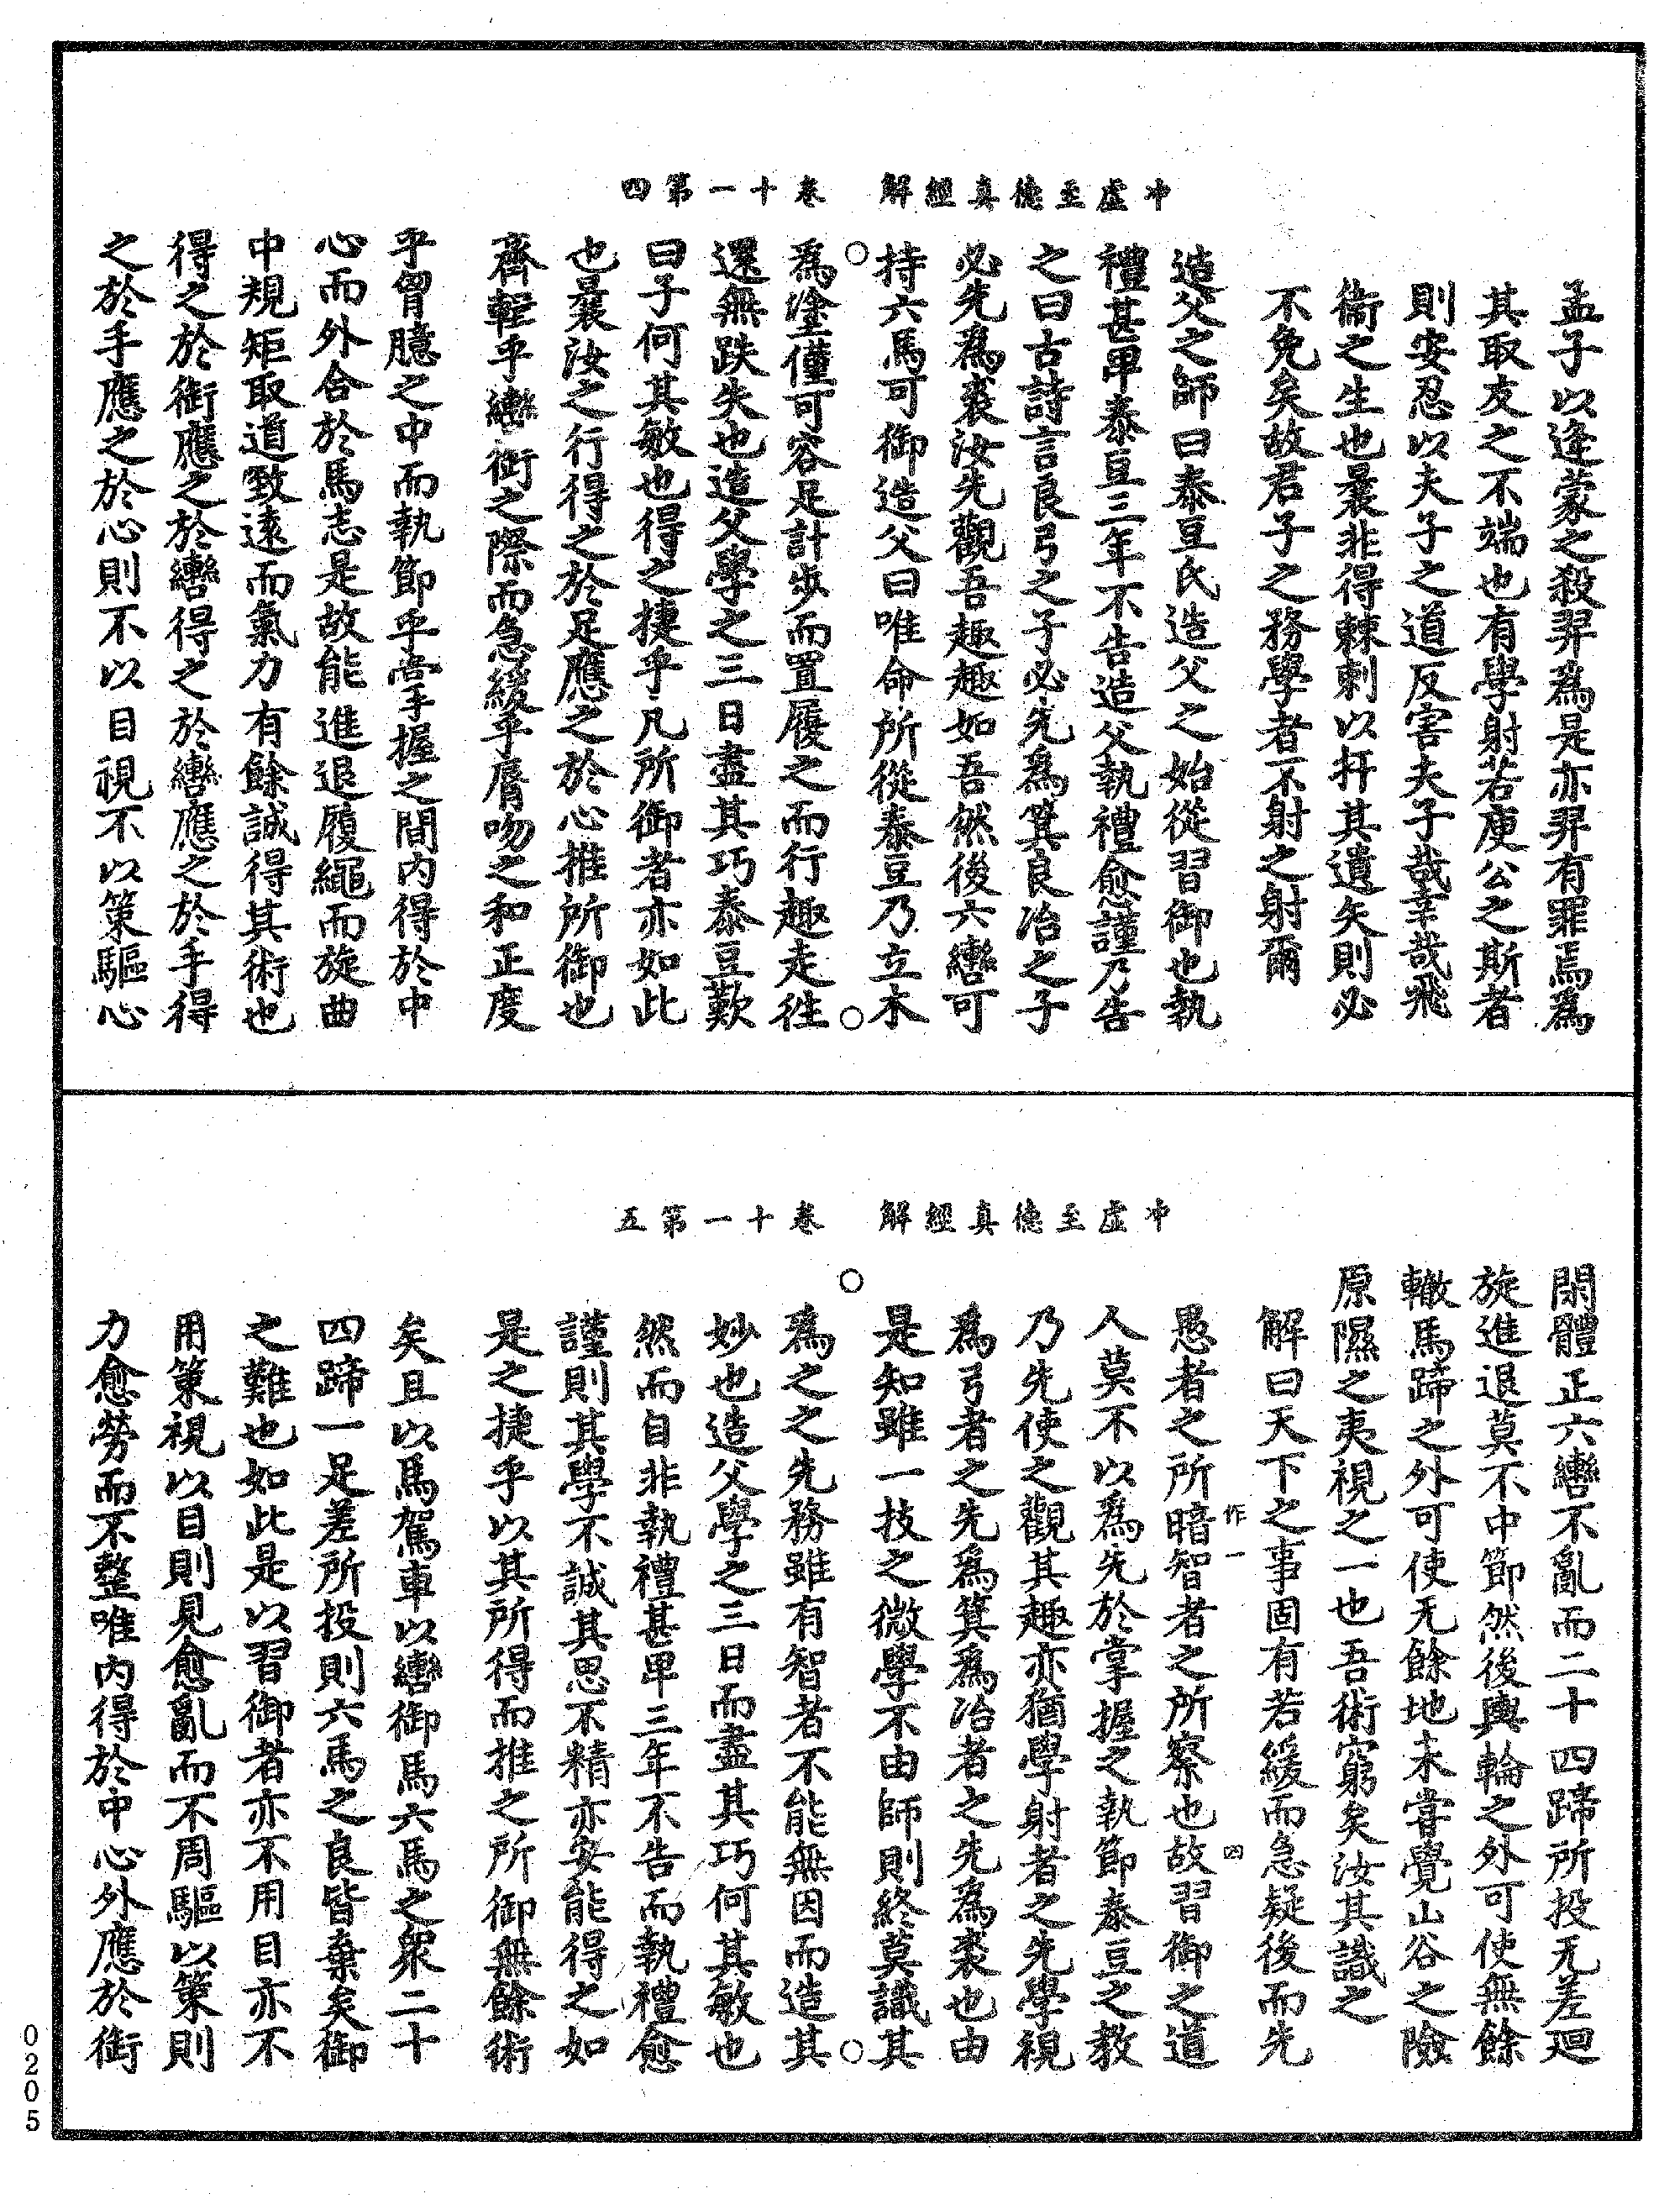 冲虛至德真經解　卷十一第四
孟子以逢蒙之殺羿爲是亦羿有罪焉爲
其取友之不端也有學射若庾公之斯者
則安忍以夫子之道反害夫子哉幸哉飛
衞之生也曩非得棘刺以扞其遺矢則必
不免矣故君子之務學者不射之射爾
造父之師曰泰豆氏造父之始從習御也執
禮甚卑泰豆三年不告造父執禮愈謹乃告
之曰古詩言良弓之子必先爲箕良冶之子
必先爲裘汝先觀吾趣趣如吾然後六轡可
持六馬可御造父曰唯命所從泰豆乃立木
爲塗僅可容足計步而置履之而行趣走往
還無跌失也造父學之三日盡其巧泰豆歎
曰子何其敏也得之捷乎凡所御者亦如此
也曩汝之行得之於足應之於心推所御也
齊輯乎轡銜之際而急緩乎脣吻之和正度
乎胷臆之中而執節乎掌握之間内得於中
心而外合於馬志是故能進退履繩而旋曲
中規矩取道致遠而氣力有餘誠得其術也
得之於銜應之於轡得之於轡應之於手得
之於手應之於心則不以目視不以策驅心
冲虛至德真經解　卷十一第五
閑體正六轡不亂而二十四蹄所投无差廻
旋進退莫不中節然後輿輪之外可使無餘
轍馬蹄之外可使无餘地未甞覺山谷之險
原隰之夷視之一也吾術窮矣汝其識之
解曰天下之事固有若緩而急疑後而先
愚者之所暗智者之所察也故習御之道
作一
四
人莫不以爲先於掌握之執節泰豆之教
乃先使之觀其趣亦猶學射者之先學視
爲弓者之先爲箕爲冶者之先爲裘也由
是知雖一技之微學不由師則終莫識其
爲之之先務雖有智者不能無因而造其
妙也造父學之三日而盡其巧何其敏也
然而自非執禮甚卑三年不告而執禮愈
謹則其學不誠其思不精亦安能得之如
是之捷乎以其所得而推之所御無餘術
矣且以馬駕車以轡御馬六馬之衆二十
四蹄一足差所投則六馬之良皆棄矣御
之難也如此是以習御者亦不用目亦不
用策視以目則見愈亂而不周驅以策則
力愈勞而不整唯内得於中心外應於銜
0205